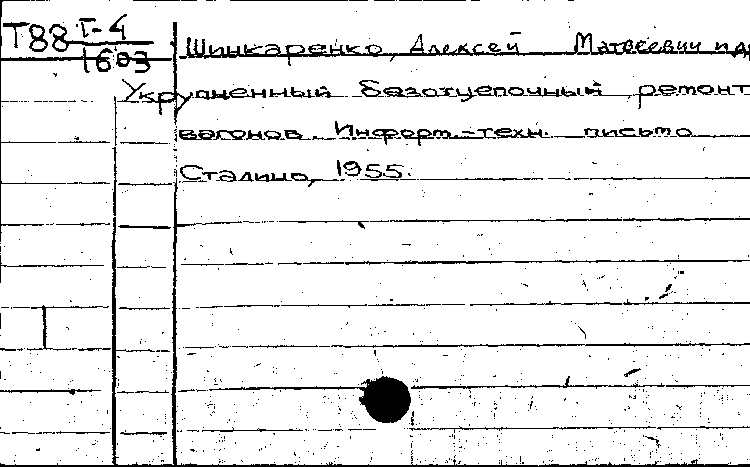 Т88 I-4
1603
Шинкаренко, Алексей Матвеевич и др
Укрупненный безотцепочный ремонт
вагонов. Информ.-техн. письмо
Сталино, 1955.